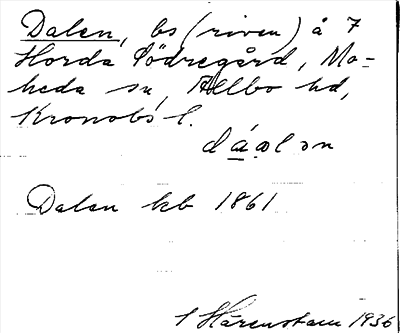 Dalen, bs (riven) å 7
Horda Södregård, Mo-
heda sn, Allbo hd,
Kronobs l.
dá̲ạl ɔn
Dalen kb 1861
Hårenstam 1936